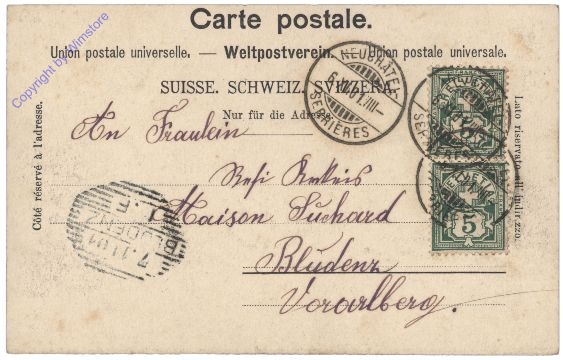 Carte postale.
Union postale universelle. — Weltpostverein. Unione postale universale.
SUISSE. SCHWEIZ. SVIZZERA.
Nur für die Adresse.
Côté réservé à l'adresse.
Lato riservato all'indirizzo.
NEUCHÂTEL
SERRIÈRES
An Fräulein
Resi
Maison Suchard
Bludenz
Vorarlberg.
BLUDENZ
7.11.01
5
Copyright by Wimstore